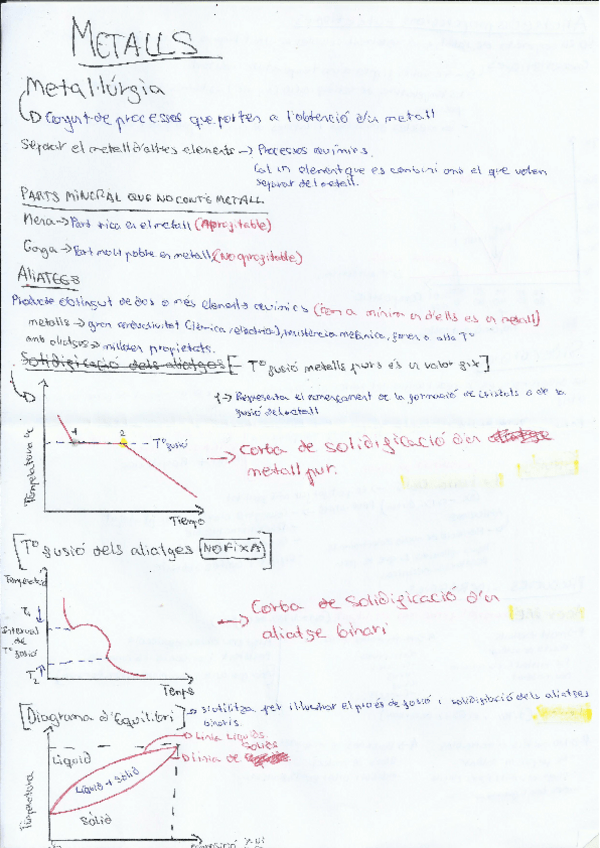 METALLS
Metal·lúrgia
Conjunt de processos que porten a l'obtenció d'un metall
Separar el metall d'altres elements → Processos químics.
Cal un element que es combini amb el que volem
separar del metall.
PARTS MINERAL QUE NO CONTÉ METALL
Mena → Part rica en el metall (Aprofitable)
Ganga → Part molt pobre en metall (No aprofitable)
ALIATGES
Producte obtingut de dos o més elements químics (com a mínim un d'ells es un metall)
metalls → gran conductivitat (tèrmica, elèctrica), resistència mecànica, a alta Tº
amb aliatges → milloren propietats.
Solidificació dels aliatges [- Tº fusió metalls purs és un valor fix]
1 → Representa el començament de la formació de cristalls o de la
fusió del metall
Temperatura
1
2
Tº fusió
→ Corba de solidificació d'un
metall pur.
Tiempo
[Tº fusió dels aliatges NO FIXA]
Temperatura
T1
Interval
de
Tº fusió
T2
→ Corba de solidificació d'un
aliatge binari
Temps
[Diagrama d'Equilibri] → s'utilitza per il·lustrar el procés de fusió i solidificació dels aliatges
binaris.
Línia Líquids.
Sòlids
Línia de
Líquid
Líquid + Sòlid
Sòlid
Temperatura